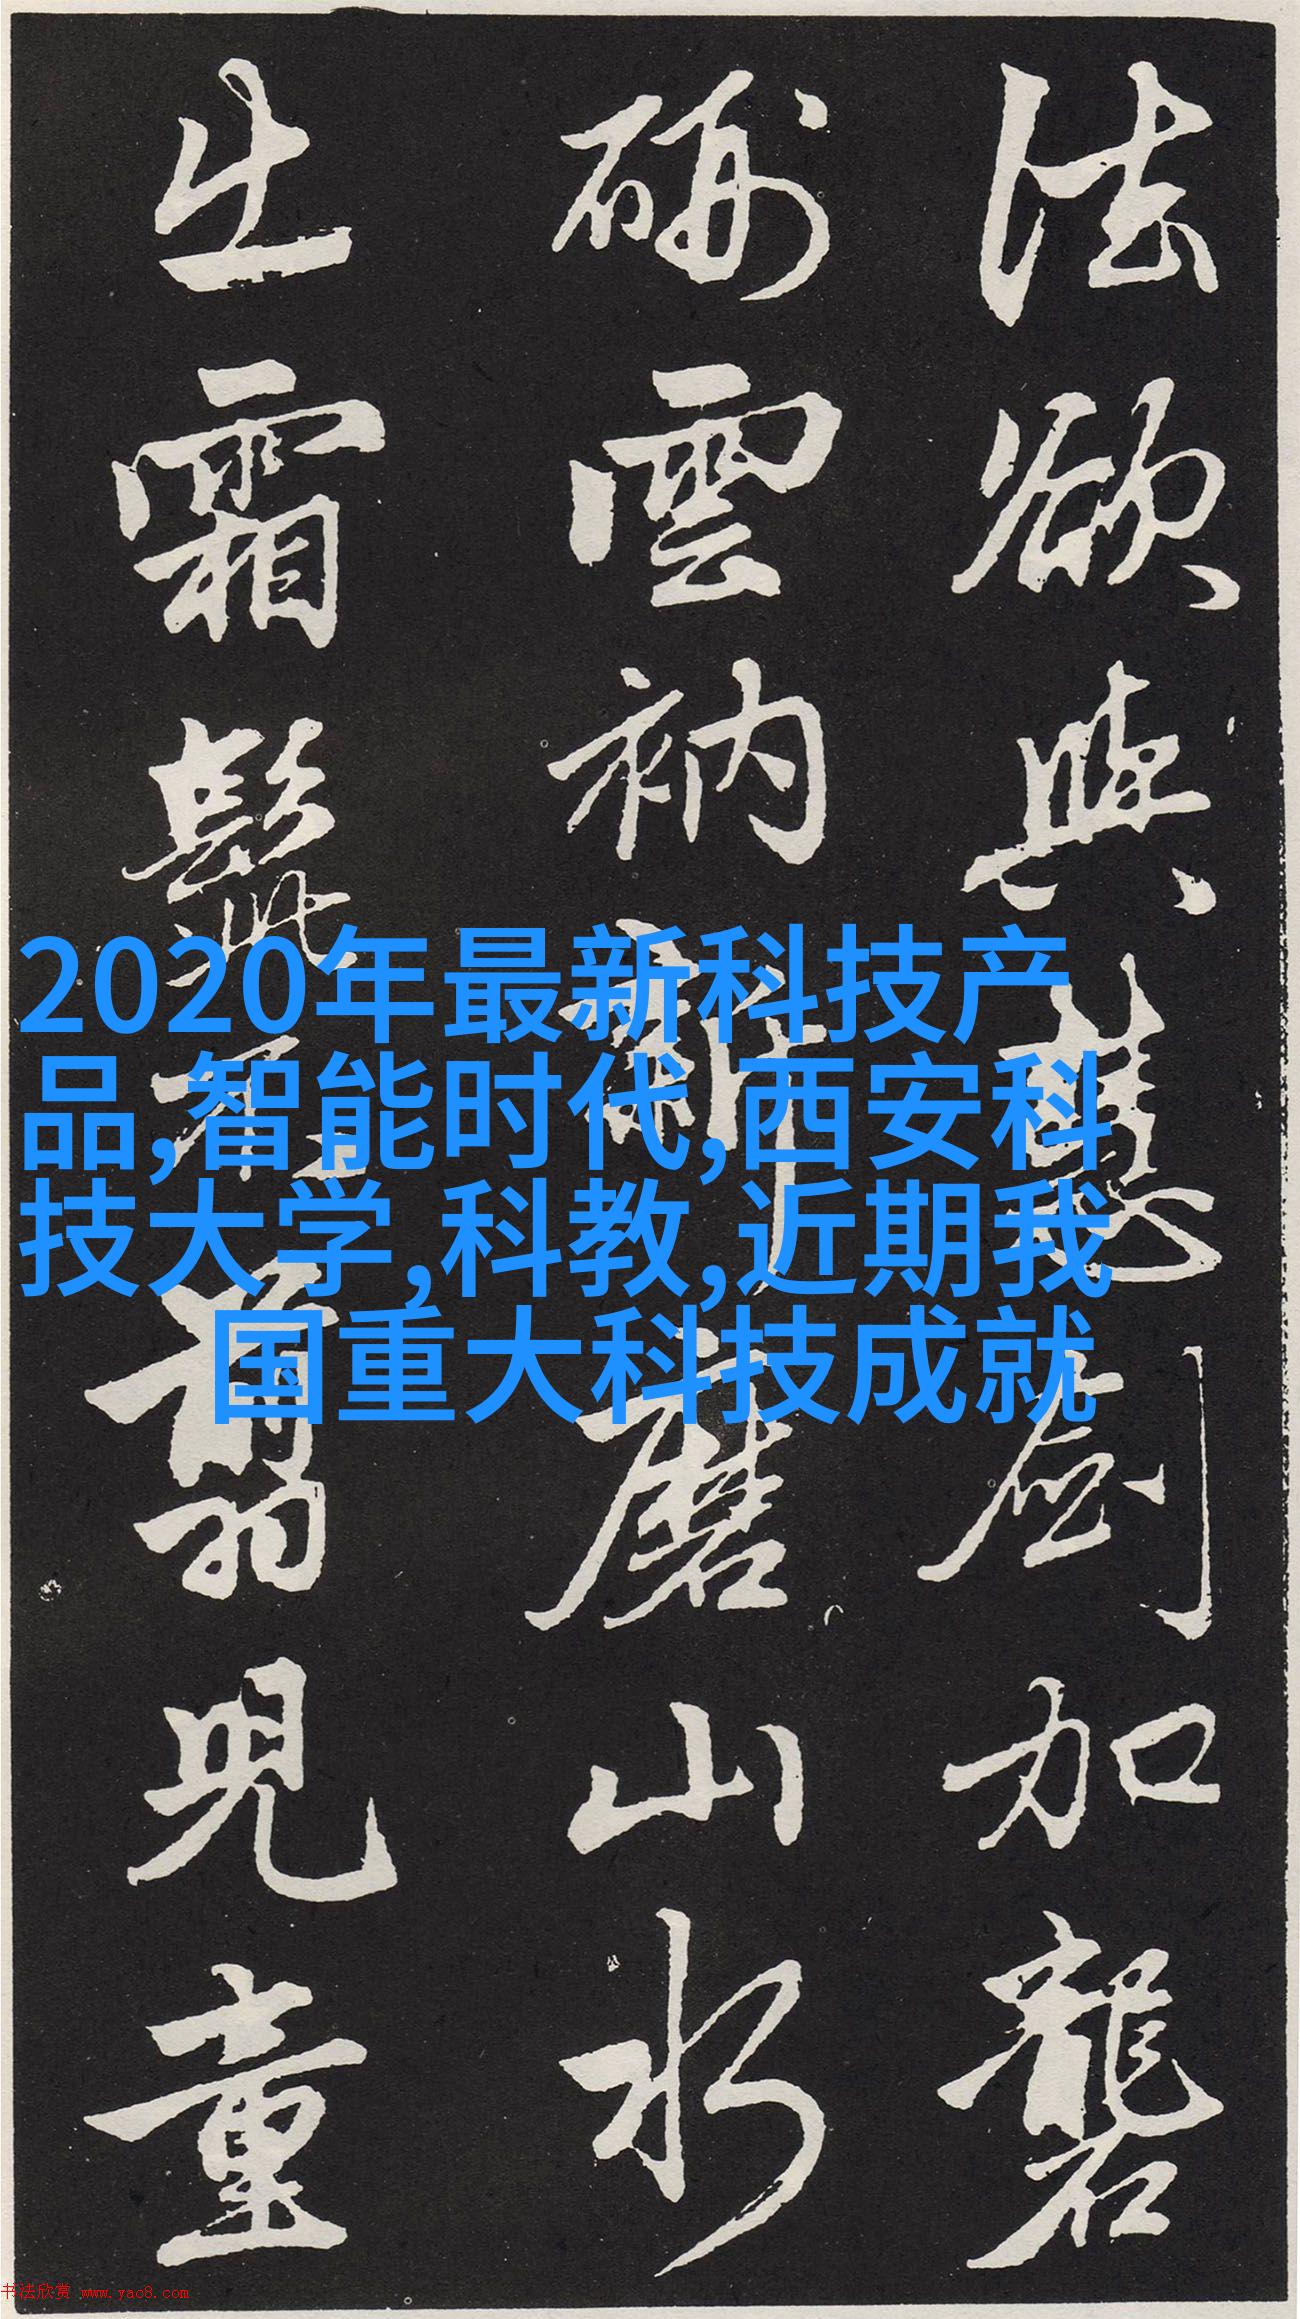 法欲與慧劍加礱
硎雲衲新磨山水
出霜髭不剪兒童
2020年最新科技产
品,智能时代,西安科
技大学,科教,近期我
国重大科技成就
书法欣赏 www.yac8.com